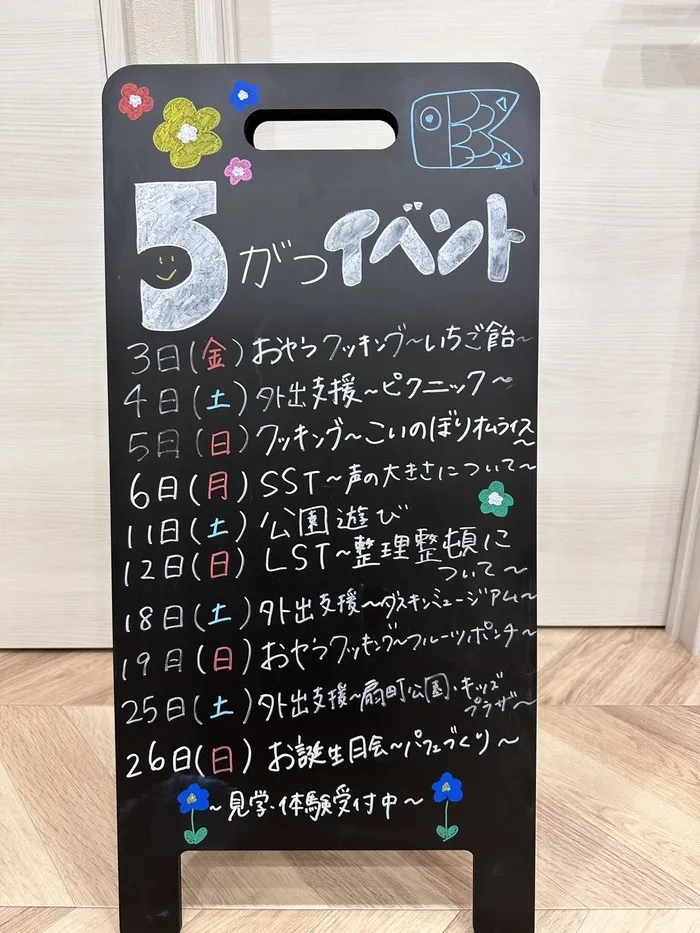 5がつイベント
3日(金)おやつクッキング〜いちご飴〜
4日(土)外出支援〜ピクニック〜
5日(日)クッキング〜こいのぼりオムライス〜
6日(月)SST〜声の大きさについて〜
11日(土)公園遊び
12日(日)LST〜整理整頓に
ついて〜
18日(土)外出支援〜ダスキンミュージアム〜
19日(日)おやつクッキング〜フルーツポンチ〜
25日(土)外出支援〜扇町公園・キッズ
プラザ〜
26日(日)お誕生日会〜パフェづくり〜
〜見学・体験受付中〜